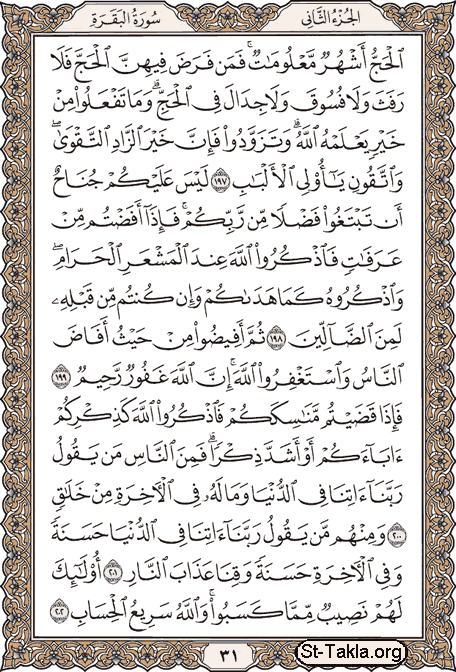 الجزء الثاني
سورة البقرة
ٱلْحَجُّ أَشْهُرٌ مَّعْلُومَٰتٌ ۚ فَمَن فَرَضَ فِيهِنَّ ٱلْحَجَّ فَلَا
رَفَثَ وَلَا فُسُوقَ وَلَا جِدَالَ فِى ٱلْحَجِّ ۗ وَمَا تَفْعَلُوا۟ مِنْ
خَيْرٍ يَعْلَمْهُ ٱللَّهُ ۗ وَتَزَوَّدُوا۟ فَإِنَّ خَيْرَ ٱلزَّادِ ٱلتَّقْوَىٰ ۖ
وَٱتَّقُونِ يَٰٓأُو۟لِى ٱلْأَلْبَٰبِ ١٩٧ لَيْسَ عَلَيْكُمْ جُنَاحٌ
أَن تَبْتَغُوا۟ فَضْلًا مِّن رَّبِّكُمْ ۚ فَإِذَآ أَفَضْتُم مِّنْ
عَرَفَٰتٍ فَٱذْكُرُوا۟ ٱللَّهَ عِندَ ٱلْمَشْعَرِ ٱلْحَرَامِ ۖ
وَٱذْكُرُوهُ كَمَا هَدَىٰكُمْ وَإِن كُنتُم مِّن قَبْلِهِۦ
لَمِنَ ٱلضَّآلِّينَ ١٩٨ ثُمَّ أَفِيضُوا۟ مِنْ حَيْثُ أَفَاضَ
ٱلنَّاسُ وَٱسْتَغْفِرُوا۟ ٱللَّهَ ۚ إِنَّ ٱللَّهَ غَفُورٌ رَّحِيمٌ ١٩٩
فَإِذَا قَضَيْتُم مَّنَٰسِكَكُمْ فَٱذْكُرُوا۟ ٱللَّهَ كَذِكْرِكُمْ
ءَابَآءَكُمْ أَوْ أَشَدَّ ذِكْرًا ۗ فَمِنَ ٱلنَّاسِ مَن يَقُولُ
رَبَّنَآ ءَاتِنَا فِى ٱلدُّنْيَا وَمَا لَهُۥ فِى ٱلْءَاخِرَةِ مِنْ خَلَٰقٍ
٢٠٠ وَمِنْهُم مَّن يَقُولُ رَبَّنَآ ءَاتِنَا فِى ٱلدُّنْيَا حَسَنَةً
وَفِى ٱلْءَاخِرَةِ حَسَنَةً وَقِنَا عَذَابَ ٱلنَّارِ ٢٠١ أُو۟لَٰٓئِكَ
لَهُمْ نَصِيبٌ مِّمَّا كَسَبُوا۟ ۚ وَٱللَّهُ سَرِيعُ ٱلْحِسَابِ ٢٠٢
٣١
St-Takla.org